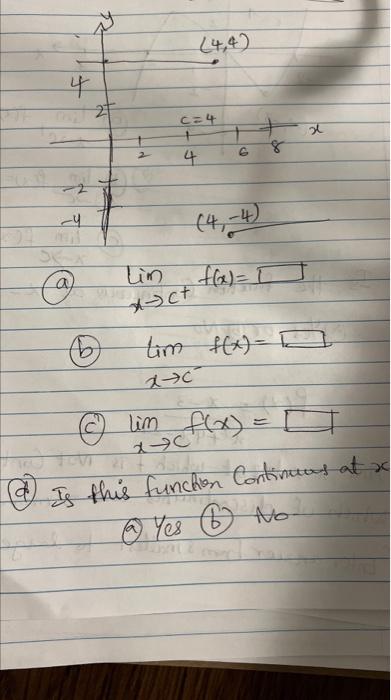 y
(4,4)
4
2
c=4
x
2 4 6 8
-2
-4
(4,-4)
(a) lim f(x)=
x→c+
(b) lim f(x)=
x→c-
(c) lim f(x) =
x→c
(d) Is this function Continuous at x
(a) Yes (b) No